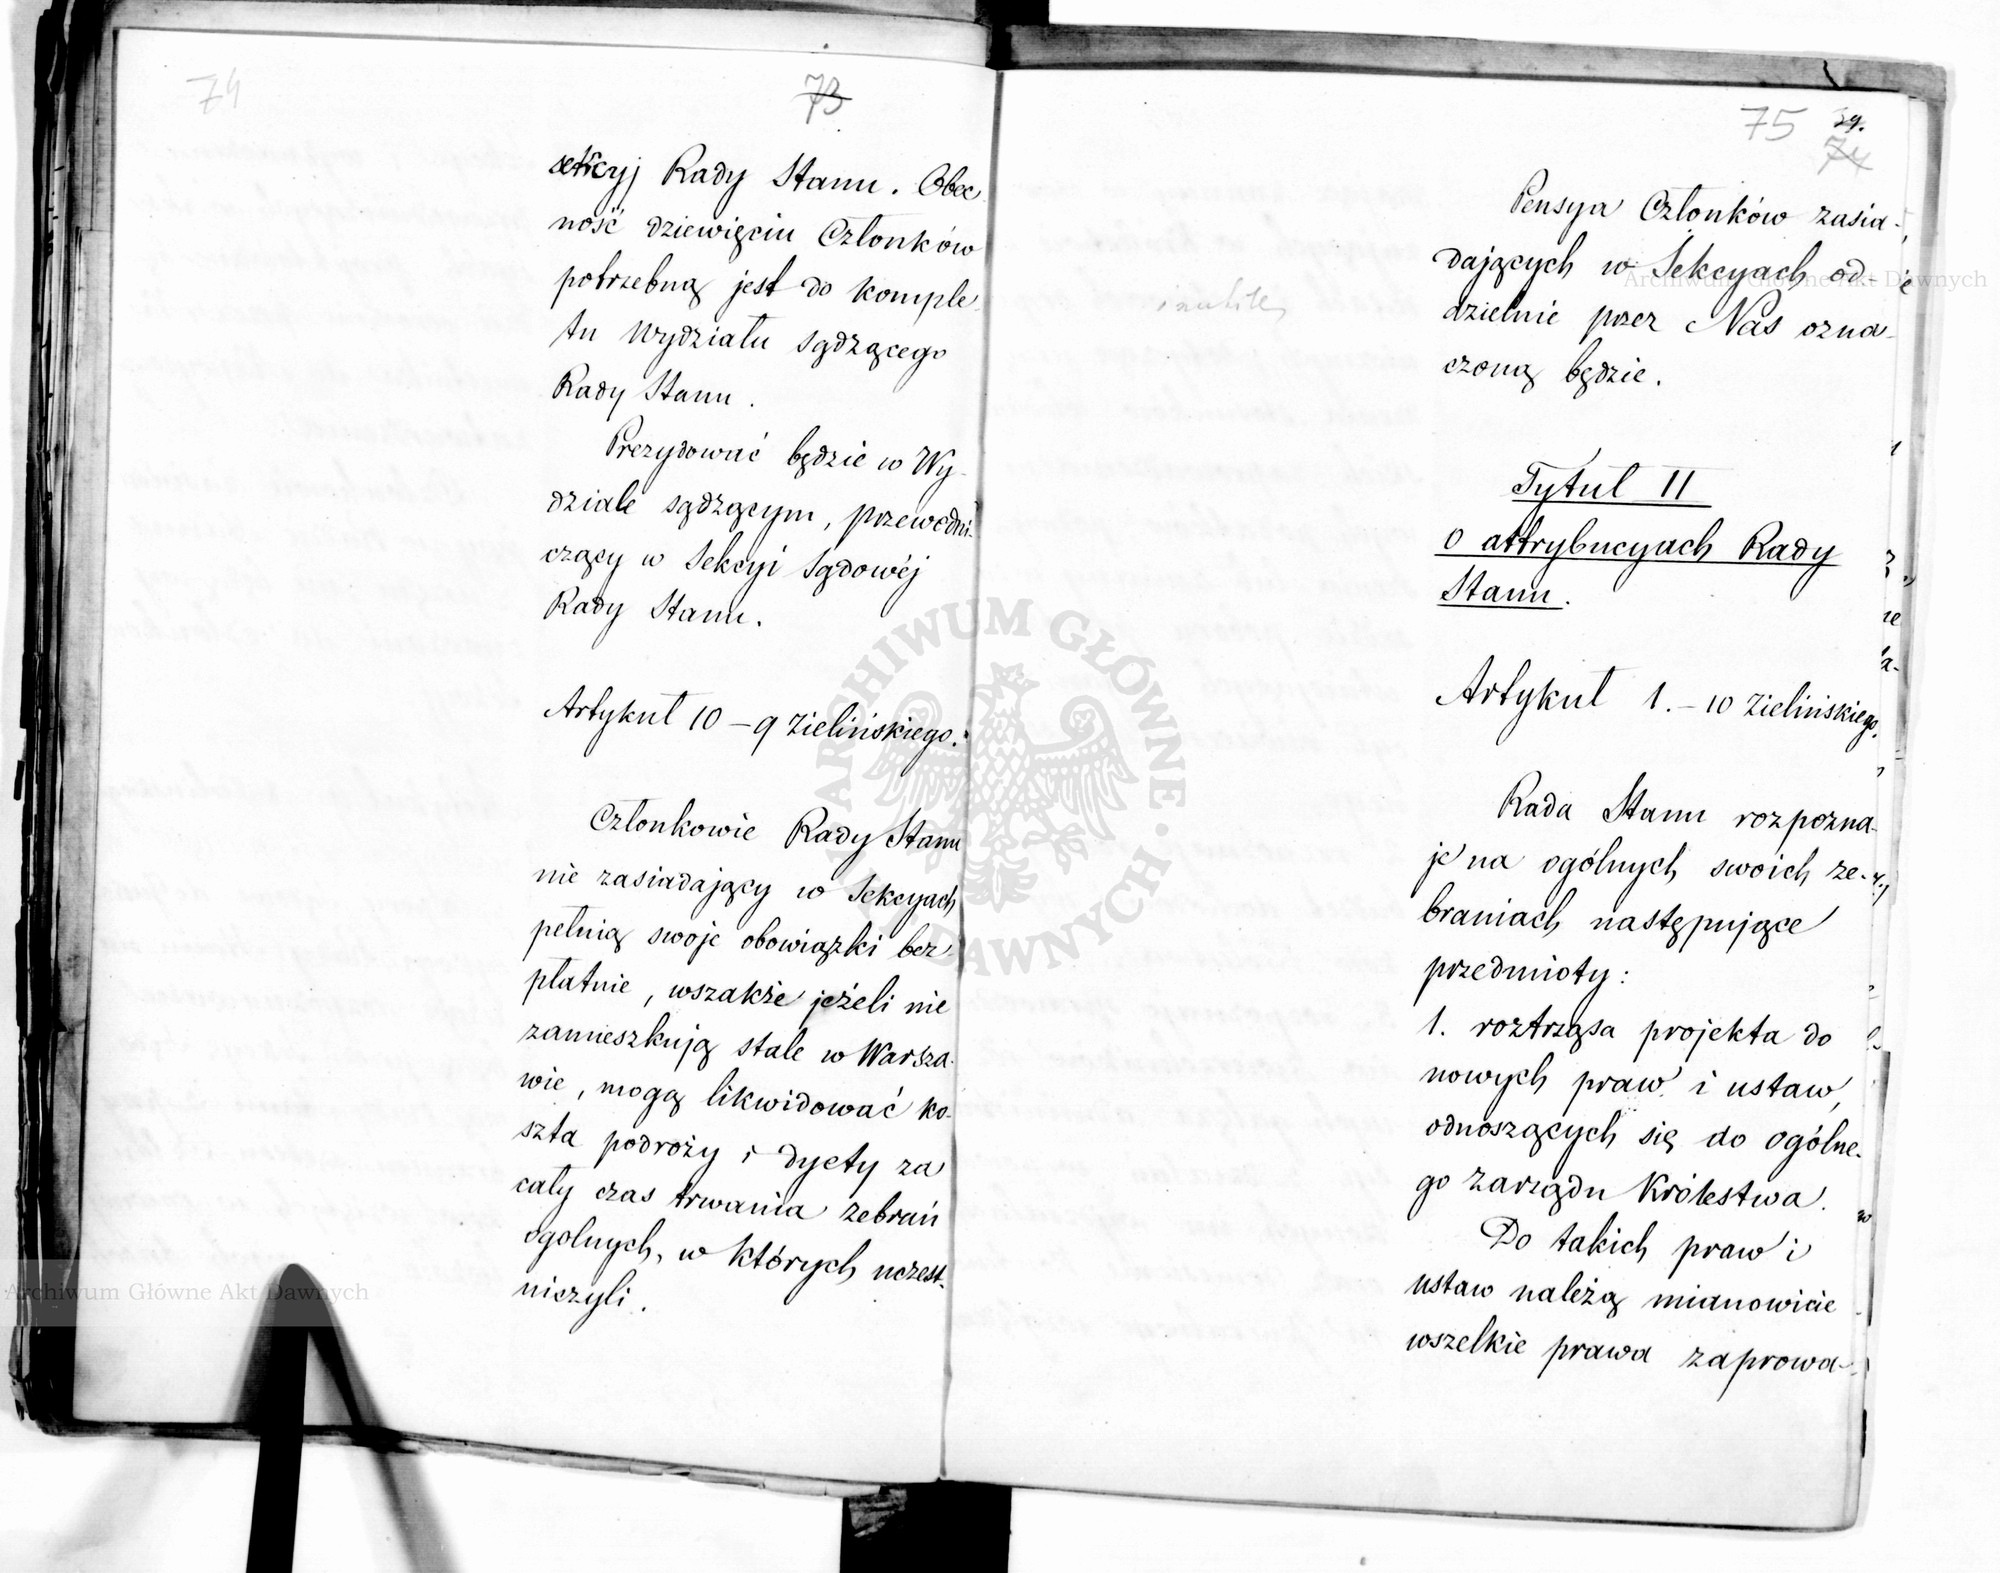 74
73
sekcyj Rady Stanu. Obec
ność dziewięciu Członków
potrzebną jest do komple-
tu Wydziału sądzącego
Rady Stanu.
Prezydować będzie w Wy-
dziale sądzącym, przewodni-
czący w Sekcyi Sądowéj
Rady Stanu.
Artykuł 10 – 9 Zielińskiego.
Członkowie Rady Stanu
nie zasiadający w Sekcyach
pełnią swoje obowiązki bez-
płatnie, wszakże jeżeli nie
zamieszkują stale w Warsza-
wie, mogą likwidować ko-
szta podroży i dyety za
cały czas trwania zebrań
ogolnych, w których uczest-
niczyli.
75 39.
74
Pensya Członków zasia-
dających w Sekcyach od-
dzielnie przez Nas ozna-
czoną będzie.
Tytuł II
o attrybucyach Rady
Stanu.
Artykuł 1. – 10 Zielińskiego.
Rada Stanu rozpozna-
je na ogólnych swoich ze-
braniach następujące
przedmioty:
1. roztrząsa projekta do
nowych praw i ustaw,
odnoszących się do ogólne-
go zarządu Królestwa.
Do takich praw i
ustaw należą mianowicie
wszelkie prawa zaprowa-
ARCHIWUM GŁÓWNE AKT DAWNYCH
Archiwum Główne Akt Dawnych
Archiwum Główne Akt Dawnych